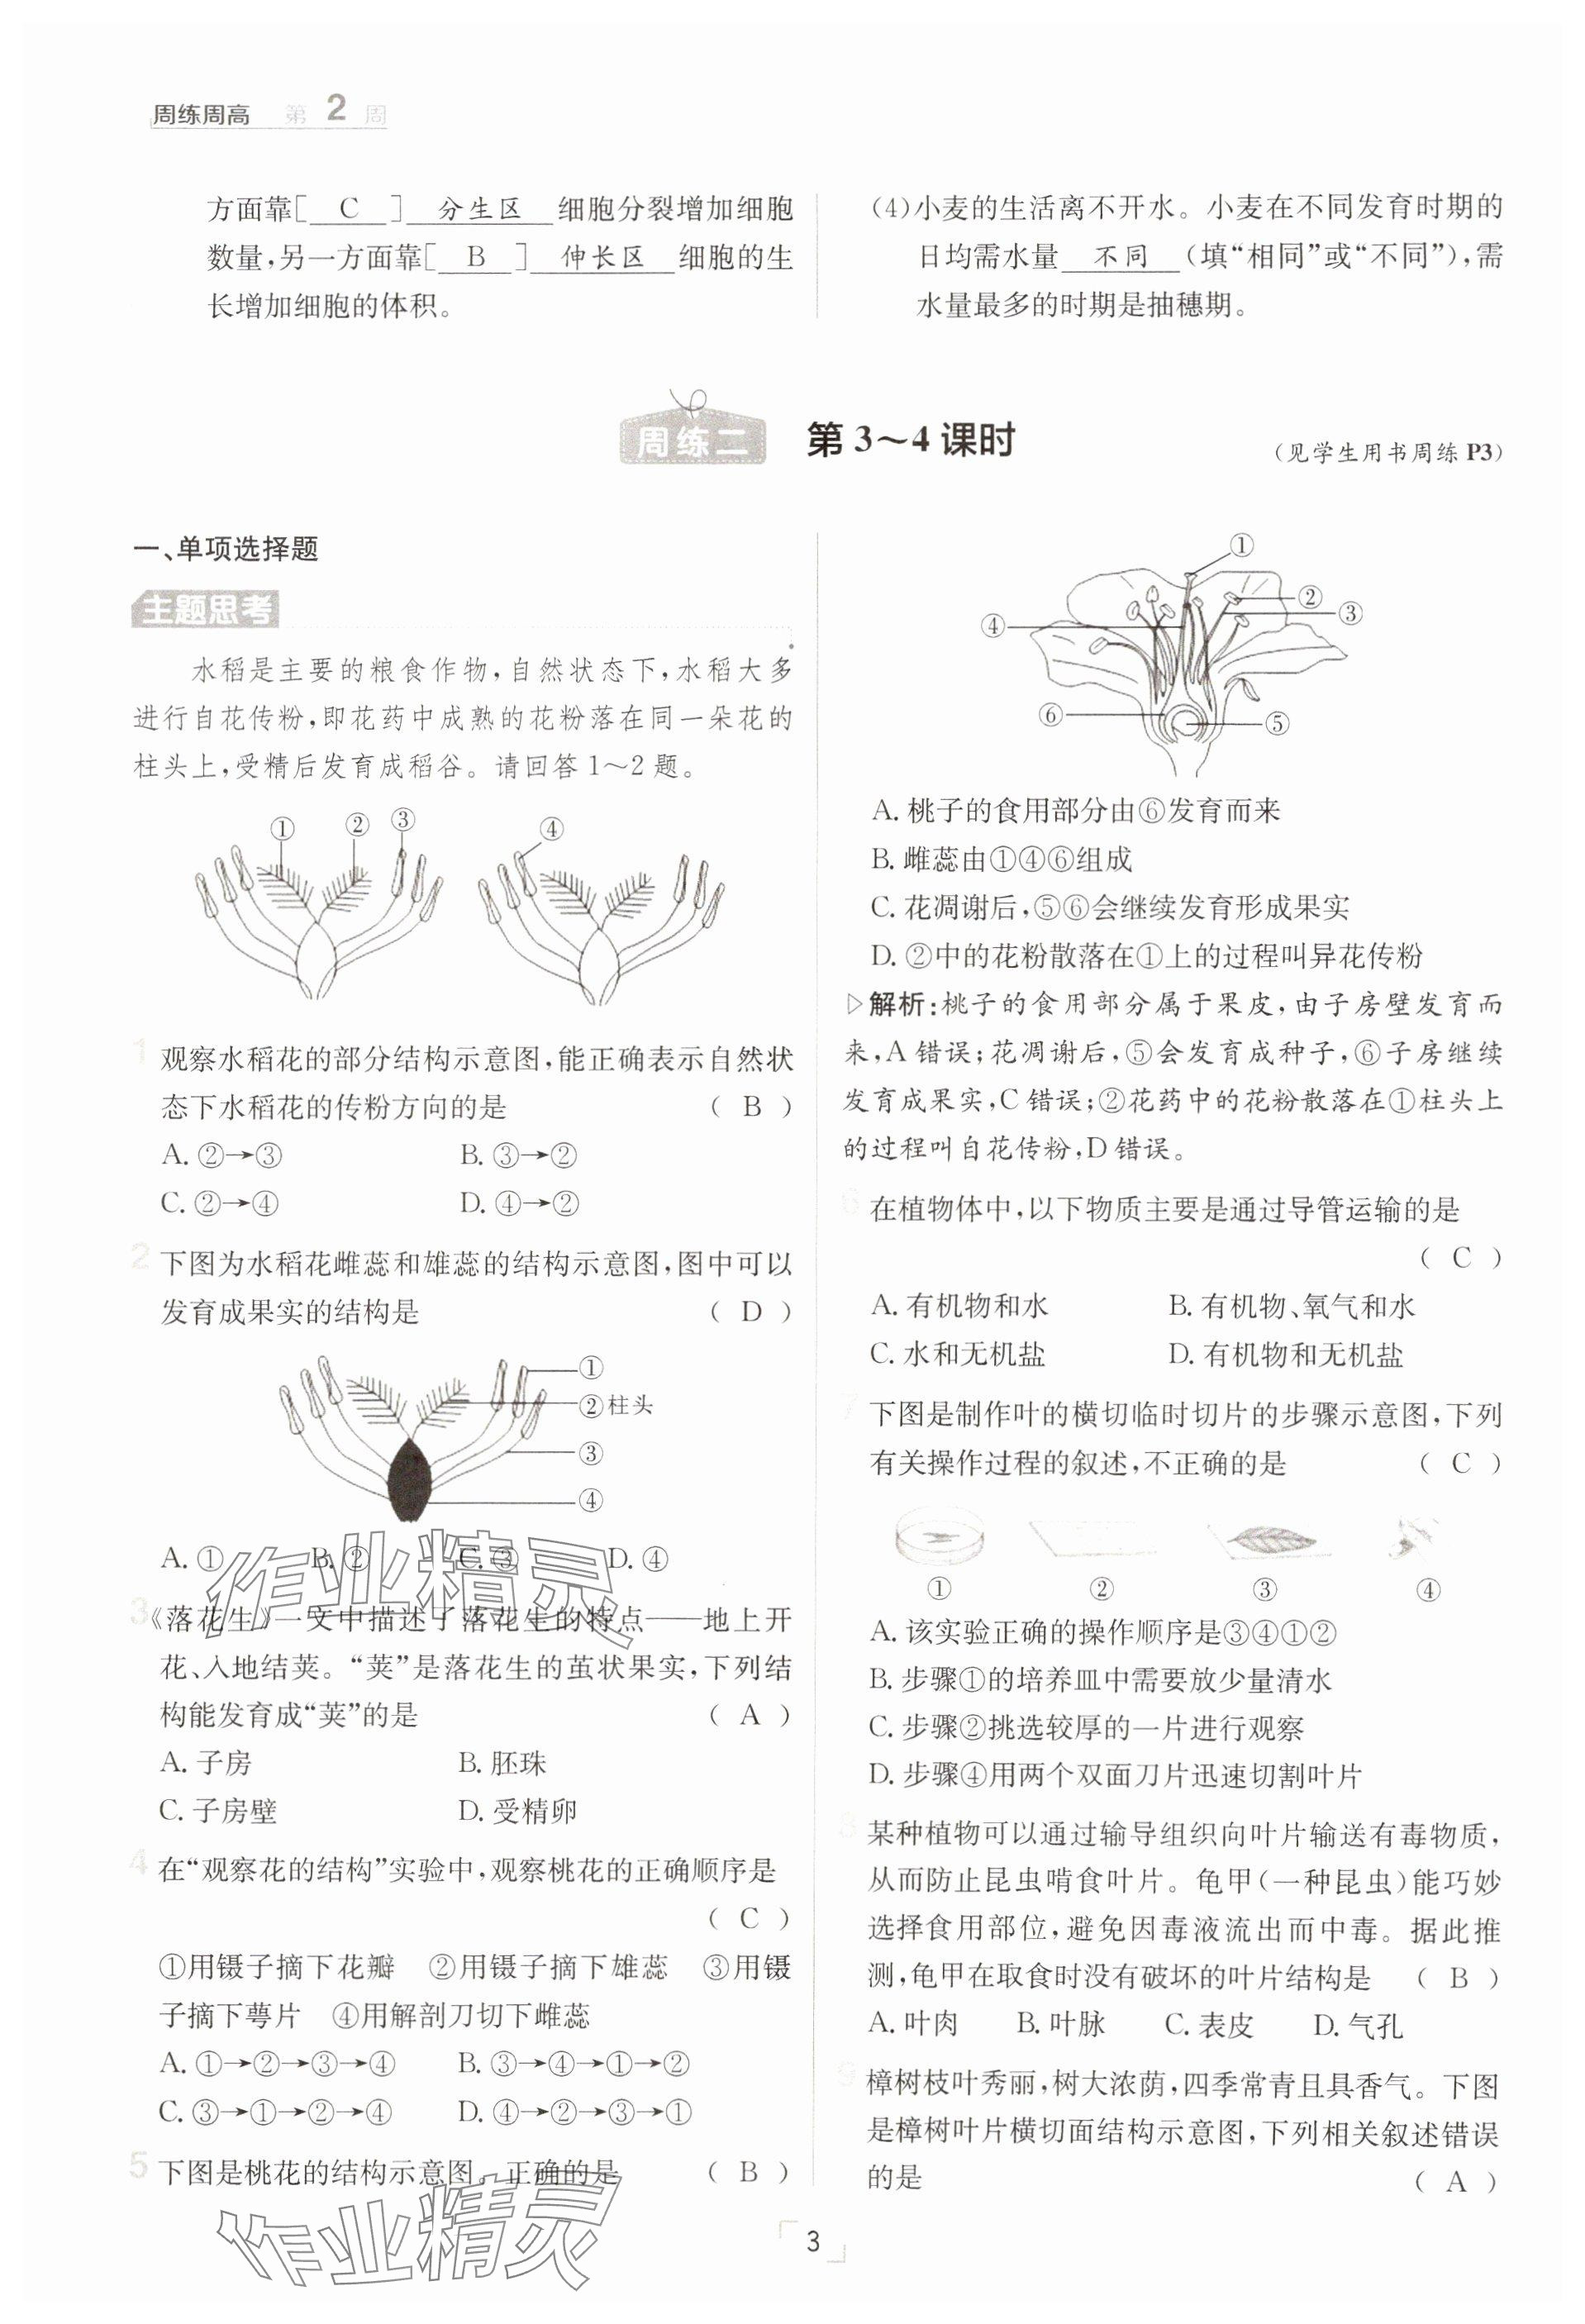 周练周高 第 2 周
方面靠[ C ] 分生区 细胞分裂增加细胞
数量,另一方面靠[ B ] 伸长区 细胞的生
长增加细胞的体积。
(4)小麦的生活离不开水。小麦在不同发育时期的
日均需水量 不同 (填“相同”或“不同”),需
水量最多的时期是抽穗期。
周练二 第 3~4 课时
(见学生用书周练 P3)
一、单项选择题
主题思考
水稻是主要的粮食作物,自然状态下,水稻大多
进行自花传粉,即花药中成熟的花粉落在同一朵花的
柱头上,受精后发育成稻谷。请回答1~2题。
① ② ③ ④
1 观察水稻花的部分结构示意图,能正确表示自然状
态下水稻花的传粉方向的是 ( B )
A. ②→③ B. ③→②
C. ②→④ D. ④→②
2 下图为水稻花雌蕊和雄蕊的结构示意图,图中可以
发育成果实的结构是 ( D )
①
②柱头
③
④
A. ① B. ② C. ③ D. ④
3 《落花生》一文中描述了落花生的特点——地上开
花、入地结荚。“荚”是落花生的茧状果实,下列结
构能发育成“荚”的是 ( A )
A. 子房 B. 胚珠
C. 子房壁 D. 受精卵
4 在“观察花的结构”实验中,观察桃花的正确顺序是
( C )
①用镊子摘下花瓣 ②用镊子摘下雄蕊 ③用镊
子摘下萼片 ④用解剖刀切下雌蕊
A. ①→②→③→④ B. ③→④→①→②
C. ③→①→②→④ D. ④→②→③→①
5 下图是桃花的结构示意图。正确的是 ( B )
①
②
③
④
⑥
⑤
A. 桃子的食用部分由⑥发育而来
B. 雌蕊由①④⑥组成
C. 花凋谢后,⑤⑥会继续发育形成果实
D. ②中的花粉散落在①上的过程叫异花传粉
▷解析:桃子的食用部分属于果皮,由子房壁发育而
来,A 错误;花凋谢后,⑤会发育成种子,⑥子房继续
发育成果实,C 错误;②花药中的花粉散落在①柱头上
的过程叫自花传粉,D 错误。
6 在植物体中,以下物质主要是通过导管运输的是
( C )
A. 有机物和水 B. 有机物、氧气和水
C. 水和无机盐 D. 有机物和无机盐
7 下图是制作叶的横切临时切片的步骤示意图,下列
有关操作过程的叙述,不正确的是 ( C )
① ② ③ ④
A. 该实验正确的操作顺序是③④①②
B. 步骤①的培养皿中需要放少量清水
C. 步骤②挑选较厚的一片进行观察
D. 步骤④用两个双面刀片迅速切割叶片
8 某种植物可以通过输导组织向叶片输送有毒物质,
从而防止昆虫啃食叶片。龟甲(一种昆虫)能巧妙
选择食用部位,避免因毒液流出而中毒。据此推
测,龟甲在取食时没有破坏的叶片结构是 ( B )
A. 叶肉 B. 叶脉 C. 表皮 D. 气孔
9 樟树枝叶秀丽,树大浓荫,四季常青且具香气。下图
是樟树叶片横切面结构示意图,下列相关叙述错误
的是 ( A )
作业精灵
作业精灵
3